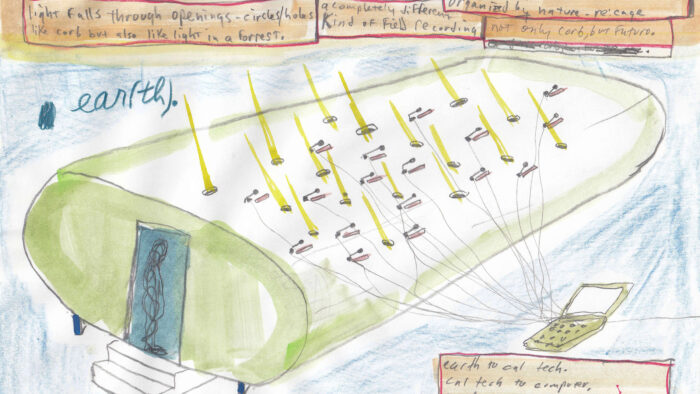 light falls through openings - circles/holes
like corb but also like light in a forrest.
a completely different
Kind of field recording
organized by nature - re: cage
not only corb, but future.
ear(th).
earth to cal tech.
cal tech to computer.